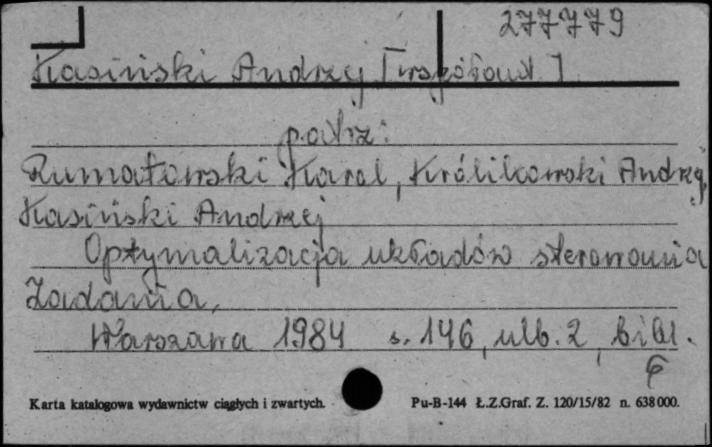 277779
Kasiński Andrzej [współaut.]
patrz:
Rumatowski Karol, Królikowski Andrzej,
Kasiński Andrzej
Optymalizacja układów sterowania
Zadania.
Warszawa 1984 s. 146, ulb. 2, bibl.
Karta katalogowa wydawnictw ciągłych i zwartych. Pu-B-144 Ł.Z.Graf. Z. 120/15/82 n. 638000.